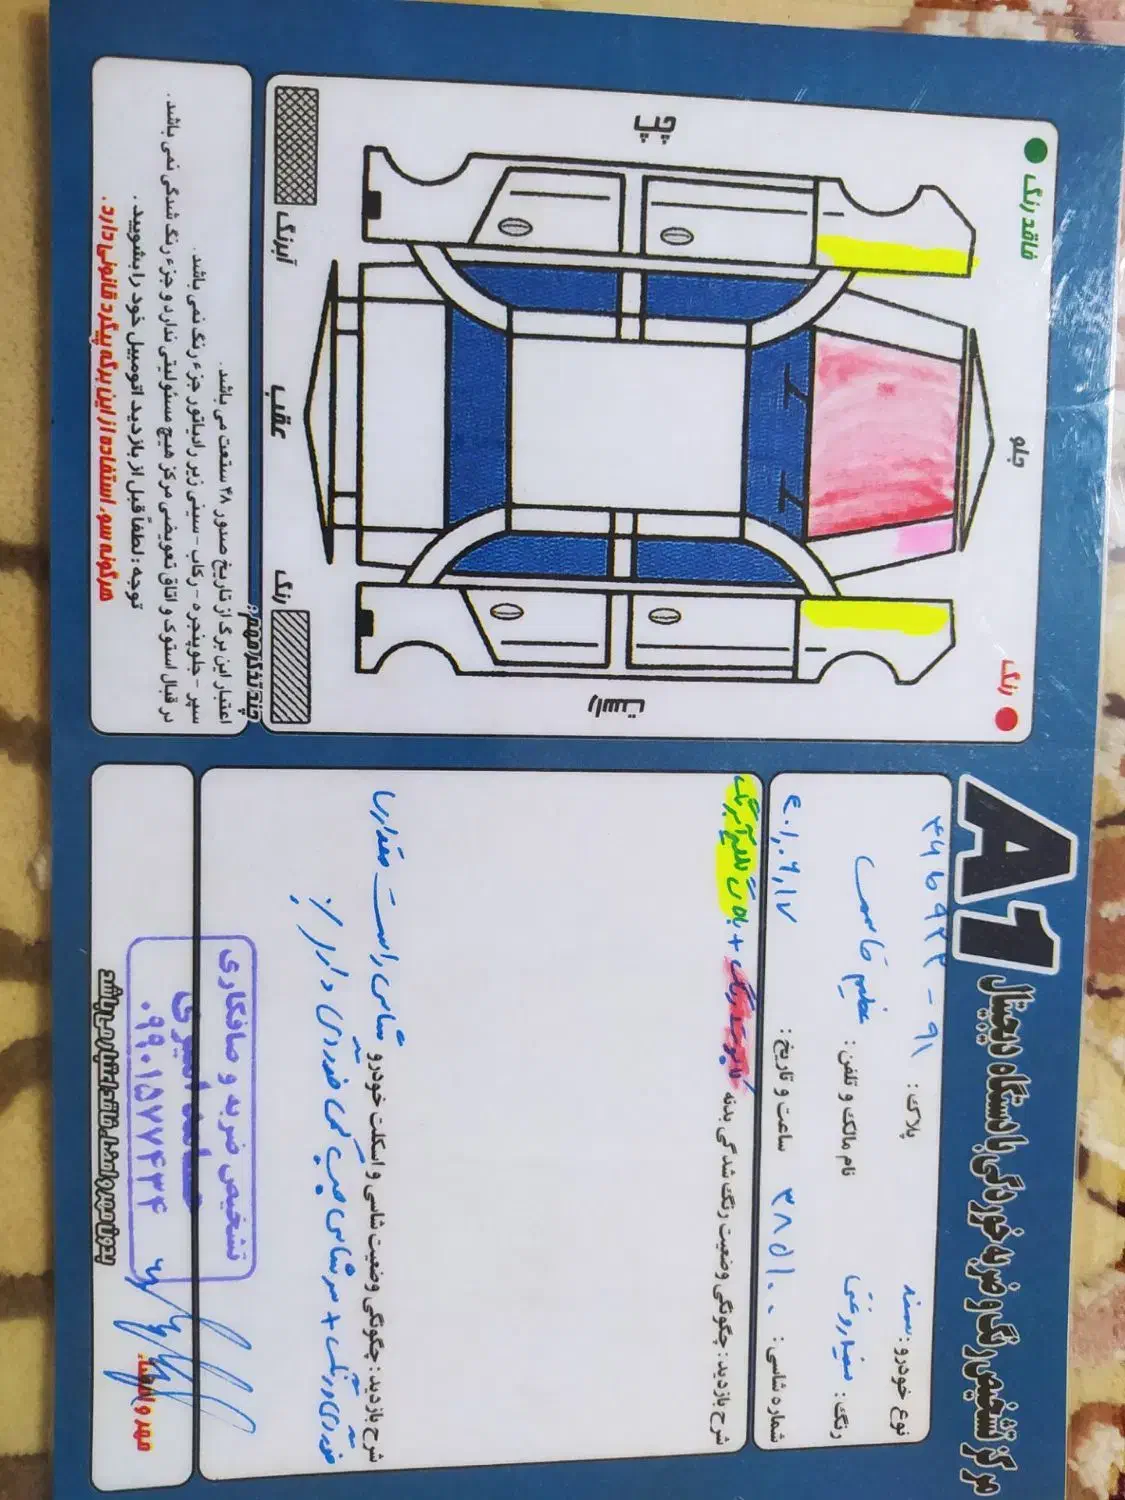 A1 مرکز تشخیص رنگ و ضربه خوردگی با دستگاه دیجیتال
نوع خودرو: سمند
پلاک:
۹۱ -
رنگ: سفید روغنی
نام مالک و تلفن: عظیم قاسمی
شماره شاسی: ۳۸۵۱۰۰
ساعت و تاریخ:
شرح بازدید: چگونگی وضعیت رنگ شدگی بدنه
کاپوت رنگ +
شرح بازدید: چگونگی وضعیت شاسی و اسکلت خودرو شاسی راست مقداری
خوردی و رنگ + سر شاسی چپ کمی خوردی دارد ٪
تشخیص ضربه و صافکاری
۰۹۹۰۱۵۷۷۴۳۴
مهر و امضاء:
بدون مهر و امضاء فاقد اعتبار می باشد
فاقد رنگ
رنگ
جلو
چپ
راست
عقب
آبرنگ
رنگ
چند تذکر مهم:
اعتبار این برگ از تاریخ صدور ۴۸ ساعت می باشد.
سپر - جلوپنجره - رکاب - سینی زیر رادیاتور جزء رنگ نمی باشد.
در قبال استوک و اتاق تعویضی مرکز هیچ مسئولیتی ندارد و جزء رنگ شدگی نمی باشد.
توجه: لطفاً قبل از بازدید اتومبیل خود را بشویید.
هرگونه سوء استفاده از این برگه پیگرد قانونی دارد.